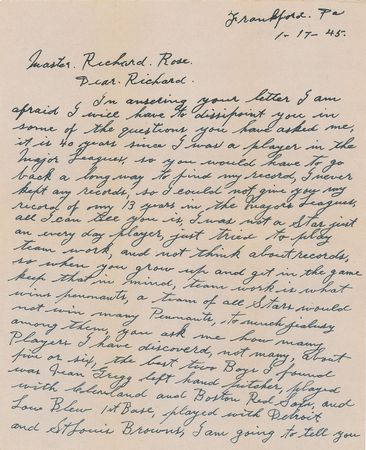 Frankford. Pa
1-17-45.
Master. Richard. Rose.
Dear. Richard.
In ansering your letter I am
afraid I will have to dissipoint you in
some of the questions you have asked me,
it is 40 years since I was a player in the
Major Leagues, so you would have to go
back a long way to find my record, I never
kept any records, so I could not give you my
record of my 13 years in the Majors Leagues,
all I can tell you is, I was not a Star just
an every day player, just tried to play
team work, and not think about records,
so when you grow up and get in the game
keep that in mind, team work is what
wins pennants, a team of all Stars would
not win many Pennants, to much jealousy
among them, you ask me how many
Players I have discoverd, not many, about
five or six, the best two Boys I found
was Vean Gregg left hand pitcher, played
with Cleveland and Boston Red Sox, and
Lou Blew 1st Base, played with Detroit
and St Louis Browns, I am going to tell you